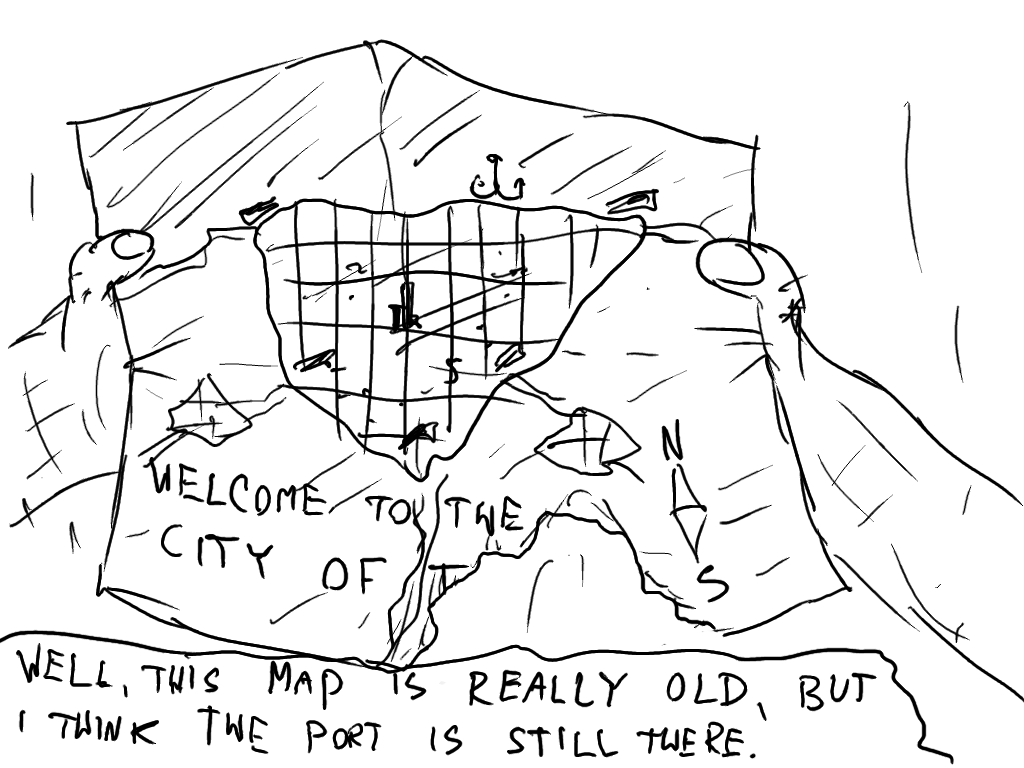 N
WELCOME TO THE
CITY OF T
S
WELL, THIS MAP IS REALLY OLD, BUT
I THINK THE PORT IS STILL THERE.